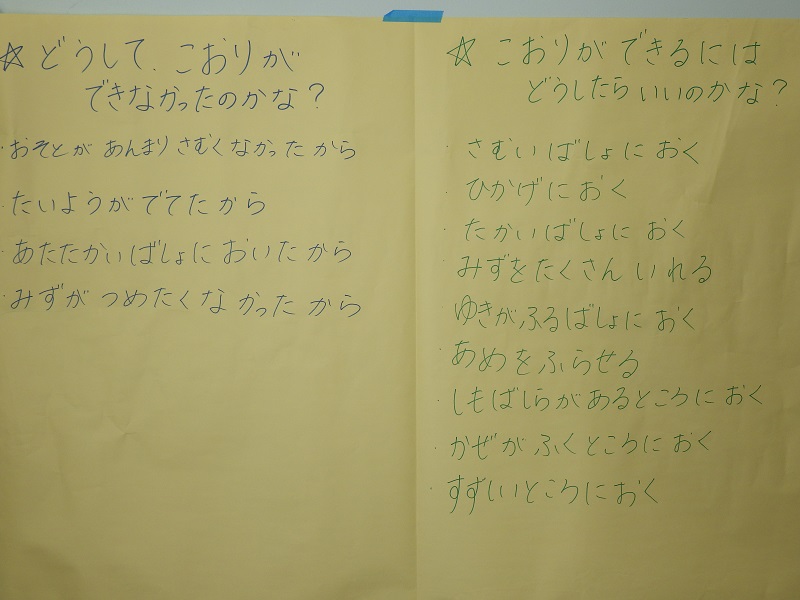 ☆どうして、こおりが
できなかったのかな?
・おそとが あんまり さむくなかったから
・たいようが でてたから
・あたたかいばしょに おいたから
・みずが つめたくなかったから
☆ こおりが できるには
どうしたら いいのかな?
・さむいばしょに おく
・ひかげに おく
・たかいばしょに おく
・みずを たくさん いれる
ゆきが ふるばしょに おく
・あめを ふらせる
・しもばしらが あるところに おく
・かぜが ふくところに おく
・すずしいところに おく